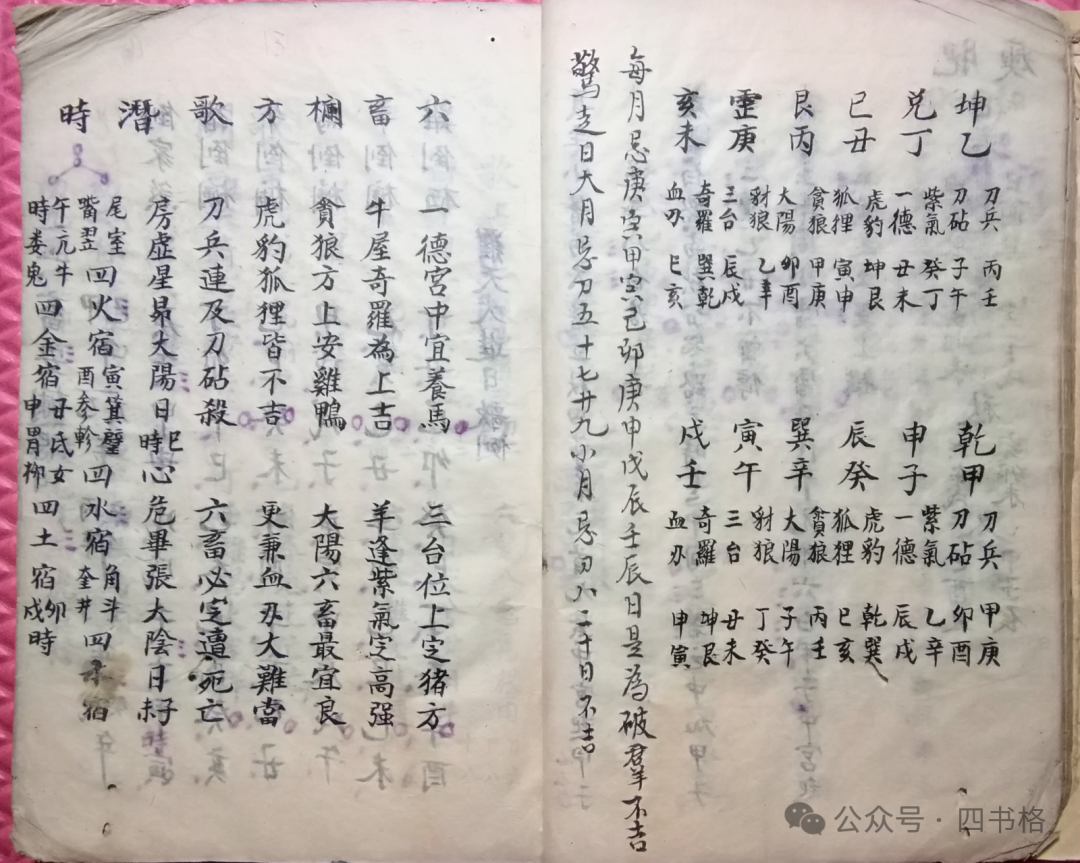 坤乙 兌丁 巳丑 艮丙 靈庚 亥未
刀兵 丙壬
刀砧 子午
紫氣 癸丁
一德 丑未
虎豹 坤艮
狐狸 寅申
貪狼 甲庚
大陽 卯酉
豺狼 乙辛
三台 辰戌
奇羅 巽乾
血刃 巳亥
乾甲 申子 辰癸 巽辛 寅午 戌壬
刀兵 甲庚
刀砧 卯酉
紫氣 乙辛
一德 辰戌
虎豹 乾巽
狐狸 巳亥
貪狼 丙壬
大陽 子午
豺狼 丁癸
三台 丑未
奇羅 坤艮
血刃 申寅
每月忌庚寅甲寅己卯庚申戊辰壬辰日是為破羣不吉
驚走日大月忌初五十七廿九小月忌初八二十日不吉
六畜欄方歌
一德宮中宜養馬 三台位上定猪方
牛屋奇羅為上吉 羊逢紫氣定高强
貪狼方上安雞鴨 大陽六畜最宜良
虎豹狐狸皆不吉 更兼血刃大難當
刀兵連及刀砧殺 六畜必定遭死亡
潛時
房虛星昴大陽日巳時 心危畢張大陰日未子
尾室嘴翌四火宿寅酉 箕璧参軫四水宿 角斗奎井四木宿
午時 亢牛娄鬼四金宿丑申 氐女胃柳四土宿卯戌時
公众号·四书格